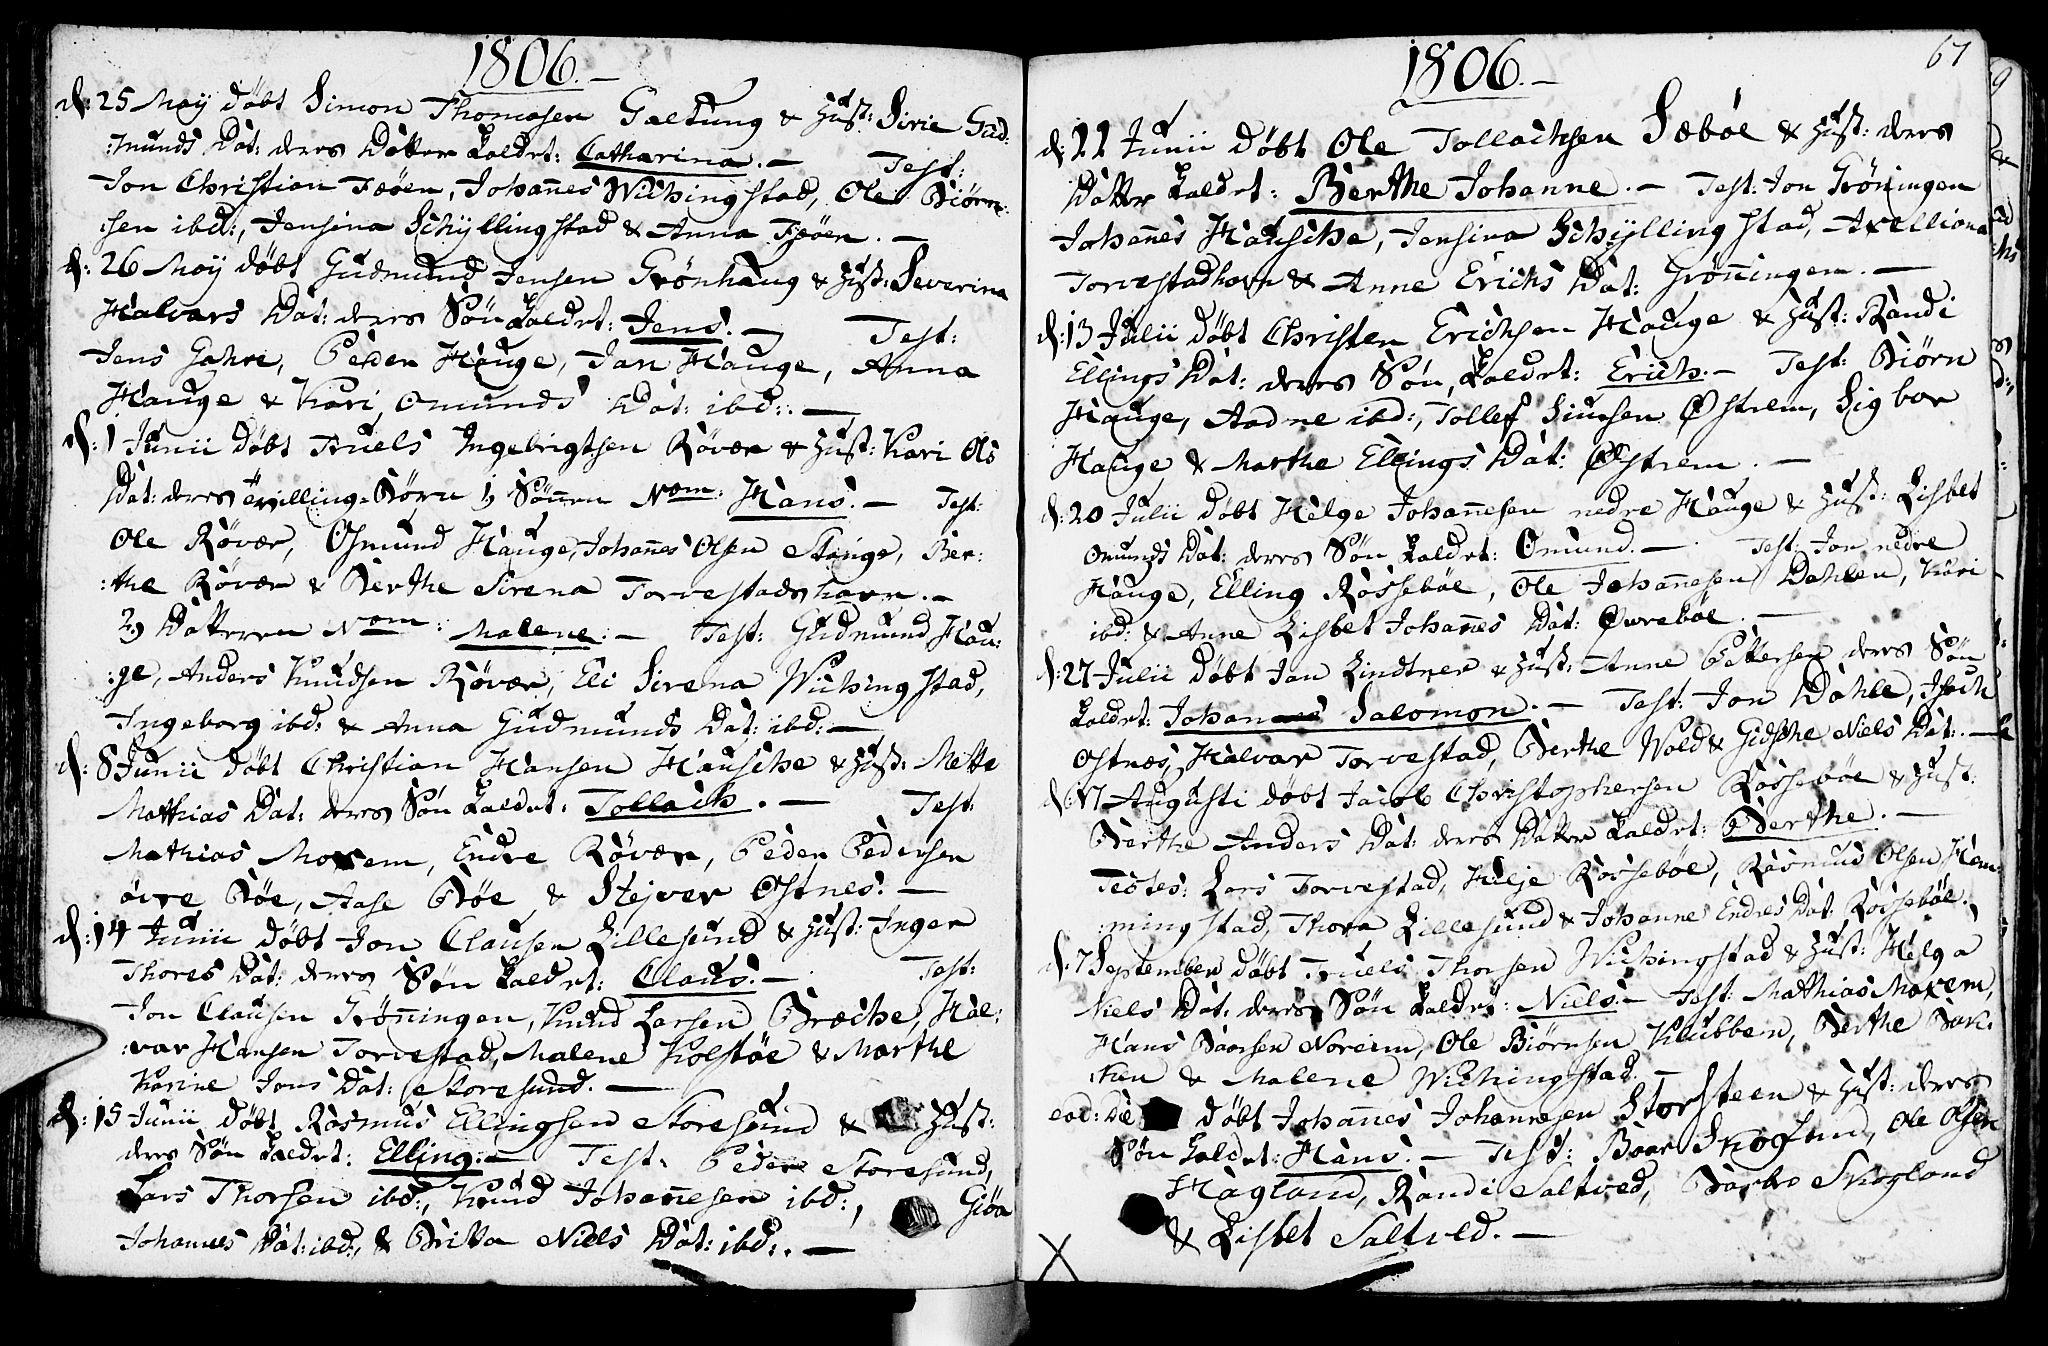 1806.-
d: 25 Maÿ döbt Simon Thomasen Galtung & Hust: Sirie Gud:
:munds Dat: deres Datter kaldet: Catharina.- Test:
Jon Christian Fæöen, Johañes Wichingstad, Ole Biörn:
:sen ibd:, Jensina Schÿllingstad & Anna Fæöen.-
d: 26 Maÿ döbt Gudmund Jensen Grönhaug & Hust: Severina
Halvars Dat: deres Sön kaldet: Jens.- Test:
Jens Gahre, Peder Hauge, Jan Hauge, Anna
Hauge & Kari Omunds Dat: ibd:.-
d: 1 Junii döbt Truels Ingebrigtsen Rövær & Hust: Kari Ols
Dat: deres tvilling-Börn 1) Sönnen Nom: Hans.- Test:
Ole Rövær, Osmund Hauge, Johañes Olsen Stange, Ber:
:the Rövær & Berthe Sirena Torvestadshavn.-
2) Datteren Nom: Malene.- Test: Gudmund Hau:
:ge, Anders Knudsen Rövær, Eli Sirena Wichingstad,
Ingeborg ibd: & Anna Gudmunds Dat: ibd:-
d: 8 Junii döbt Christian Hansen Hausche & Hust: Mette
Mathias Dat: deres Sön kaldet: Tollach.- Test:
Mathias Moxem, Endre Rövær, Peder Pedersen
övre Böe, Aase Böe & Stejver Ostnes.-
d: 14 Junii döbt Jon Clausen Lillesund & Hust: Inger
Thores Dat: deres Sön kaldet: Claus.- Test:
Jon Clausen Gröñingen, Knud Larsen Bræche, Hal:
:var Hansen Torvestad, Malene Kolstöe & Marthe
Karine Jons Dat: Storesund.-
d: 15 Junii döbt Rasmus Ellingsen Storesund & Hust:
deres Sön kaldet: Elling.- Test: Peder Storesund,
Lars Thorsen ibd:, Knud Johañesen ibd:, Giöa
Johannes Dat: ibd:, & Britta Niels Dat: ibd:.-
1806.- 67
d: 22 Junii döbt Ole Tollachsen Sæböe & Hust: deres
Datter kaldet: Berthe Johanne.- Test: Jon Gröningen
Johañes Hausche, Jensina Schÿllingstad, Axelliana
Torvestadhavn & Anne Erichs Dat: Gröñingen.-
d: 13 Julii döbt Christen Erichsen Hauge & Hust: Randi
Ellings Dat: deres Sön, kaldet: Erich.- Test: Biörn
Hauge, Aadne ibd:, Tollef Siursen Østrem, Sigbor
Hauge & Marthe Ellings Dat: Østrem.-
d: 20 Julii döbt Helge Johañesen nedre Hauge & Hust: Lisbet
Omunds Dat: deres Sön kaldet: Omund.- Test: Jon nedre
Hauge, Elling Rosseböe, Ole Johañesen Dahlen, Kari
ibd: & Anne Lisbet Johañes Dat: Øvreböe.-
d: 27 Julii döbt Jan Lindtner & Hust: Anne Pettersen deres Sön
kaldet: Johannes Salomon.- Test: Jon Dahle, Isach
Ostnæs, Halvar Torvestad, Berthe Wold & Gidsche Niels Dat:.-
d: 17 Augusti döbt Jacob Christophersen Rosseböe & Hust:
Berthe Anders Dat: deres Datter kaldet: Berthe.-
Testes: Lars Torvestad, Helje Rosseböe, Rasmus Olsen Hem:
:mingstad, Thora Lillesund & Johanne Endres Dat: Rosseböe.
d: 7 September döbt Truels Thorsen Wichingstad & Hust: Helga
Niels Dat: deres Sön kaldet: Niels.- Test: Mathias Moxem,
Hans Baarsen Noreim, Ole Biörnsen Klubben, Berthe Bak:
:ken & Malene Wichingstad.-
eod: die döbt Johañes Johannesen Storsteen & Hust: deres
Sön kaldet: Hans.- Test: Baar Skogland, Ole Olsen
Hagland, Randi Saltved, Barbro Skogland
& Lisbet Saltved.-
X